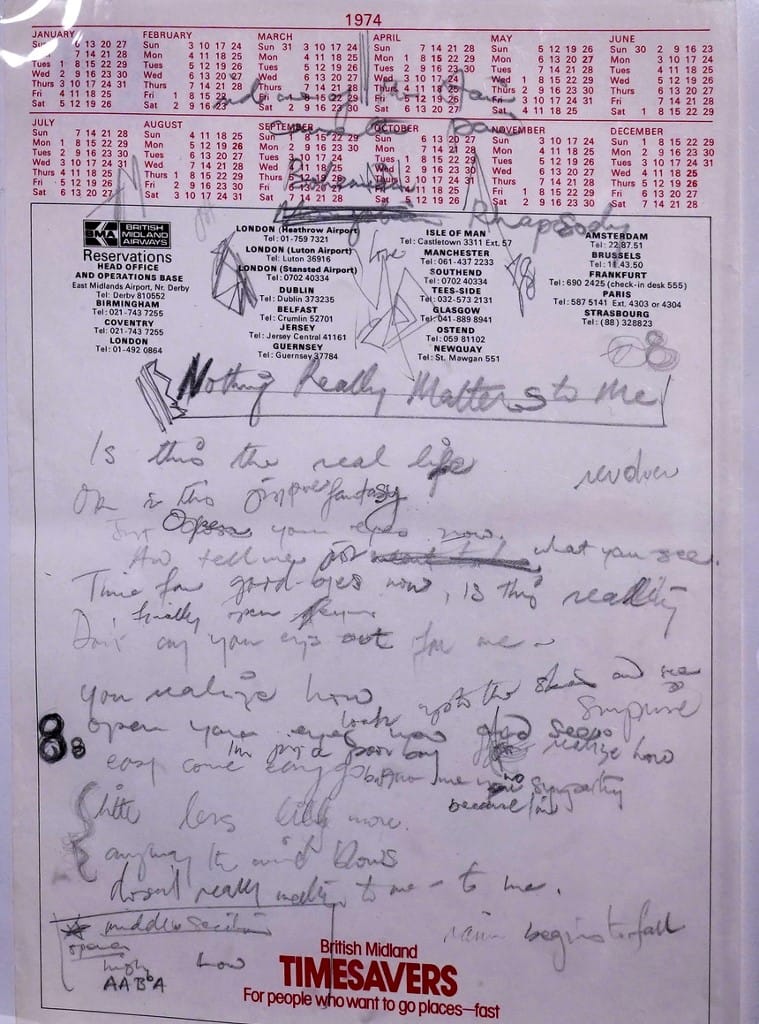 1974
JANUARY FEBRUARY MARCH APRIL MAY JUNE
Sun 6 13 20 27 Sun 3 10 17 24 Sun 31 3 10 17 24 Sun 7 14 21 28 Sun 5 12 19 26 Sun 30 2 9 16 23
7 14 21 28 Mon 4 11 18 25 Mon 4 11 18 25 Mon 1 8 15 22 29 Mon 6 13 20 27 Mon 3 10 17 24
Tues 1 8 15 22 29 Tues 5 12 19 26 Tues 5 12 19 26 Tues 2 9 16 23 30 Tues 7 14 21 28 Tues 4 11 18 25
Wed 2 9 16 23 30 Wed 6 13 20 27 Wed 6 13 20 27 Wed 3 10 17 24 Wed 1 8 15 22 29 Wed 5 12 19 26
Thurs 3 10 17 24 31 Thurs 7 14 21 28 Thurs 7 14 21 28 Thurs 4 11 18 25 Thurs 2 9 16 23 30 Thurs 6 13 20 27
Fri 4 11 18 25 Fri 1 8 15 22 Fri 1 8 15 22 29 Fri 5 12 19 26 Fri 3 10 17 24 31 Fri 7 14 21 28
Sat 5 12 19 26 Sat 2 9 16 23 Sat 2 9 16 23 30 Sat 6 13 20 27 Sat 4 11 18 25 Sat 1 8 15 22 29
JULY AUGUST SEPTEMBER OCTOBER NOVEMBER DECEMBER
Sun 7 14 21 28 Sun 4 11 18 25 Sun 1 8 15 22 29 Sun 6 13 20 27 Sun 3 10 17 24 Sun 1 8 15 22 29
Mon 1 8 15 22 29 Mon 5 12 19 26 Mon 2 9 16 23 30 Mon 7 14 21 28 Mon 4 11 18 25 Mon 2 9 16 23 30
Tues 2 9 16 23 30 Tues 6 13 20 27 Tues 3 10 17 24 Tues 1 8 15 22 29 Tues 5 12 19 26 Tues 3 10 17 24 31
Wed 3 10 17 24 31 Wed 7 14 21 28 Wed 4 11 18 25 Wed 2 9 16 23 30 Wed 6 13 20 27 Wed 4 11 18 25
Thurs 4 11 18 25 Thurs 1 8 15 22 29 Thurs 5 12 19 26 Thurs 3 10 17 24 31 Thurs 7 14 21 28 Thurs 5 12 19 26
Fri 5 12 19 26 Fri 2 9 16 23 30 Fri 6 13 20 27 Fri 4 11 18 25 Fri 1 8 15 22 29 Fri 6 13 20 27
Sat 6 13 20 27 Sat 3 10 17 24 31 Sat 7 14 21 28 Sat 5 12 19 26 Sat 2 9 16 23 30 Sat 7 14 21 28
Bohemian
Rhapsody
BMA BRITISH MIDLAND AIRWAYS
Reservations
HEAD OFFICE
AND OPERATIONS BASE
East Midlands Airport, Nr. Derby
Tel: Derby 810552
BIRMINGHAM
Tel: 021-743 7255
COVENTRY
Tel: 021-743 7255
LONDON
Tel: 01-492 0864
LONDON (Heathrow Airport)
Tel: 01-759 7321
LONDON (Luton Airport)
Tel: Luton 36916
LONDON (Stansted Airport)
Tel: 0702 40334
DUBLIN
Tel: Dublin 373235
BELFAST
Tel: Crumlin 52701
JERSEY
Tel: Jersey Central 41161
GUERNSEY
Tel: Guernsey 37784
love
ISLE OF MAN
Tel: Castletown 3311 Ext. 57
MANCHESTER
Tel: 061-437 2233
SOUTHEND
Tel: 0702 40334
TEES-SIDE
Tel: 032-573 2131
GLASGOW
Tel: 041-889 8941
OSTEND
Tel: 059 81102
NEWQUAY
Tel: St. Mawgan 551
AMSTERDAM
Tel: 22.87.51
BRUSSELS
Tel: 11.43.50
FRANKFURT
Tel: 690 2425 (check-in desk 555)
PARIS
Tel: 587 5141 Ext. 4303 or 4304
STRASBOURG
Tel: (88) 328823
Nothing Really Matters to Me
Is this the real life
revolver
Or is this just pure fantasy
Just Open your eyes now.
And tell me what you see.
Time for good-byes now, is this reality
finally open
Don't cry your eyes out for me
you realize how look up to the skies and see
surprised
open your eyes now
realize how
I'm just a poor boy
easy come easy go no sympathy
because I'm
little less little more.
anyway the wind blows
doesn't really matter to me - to me.
middle section
rain begins to fall
opener
high low
AABbA
British Midland
TIMESAVERS
For people who want to go places—fast